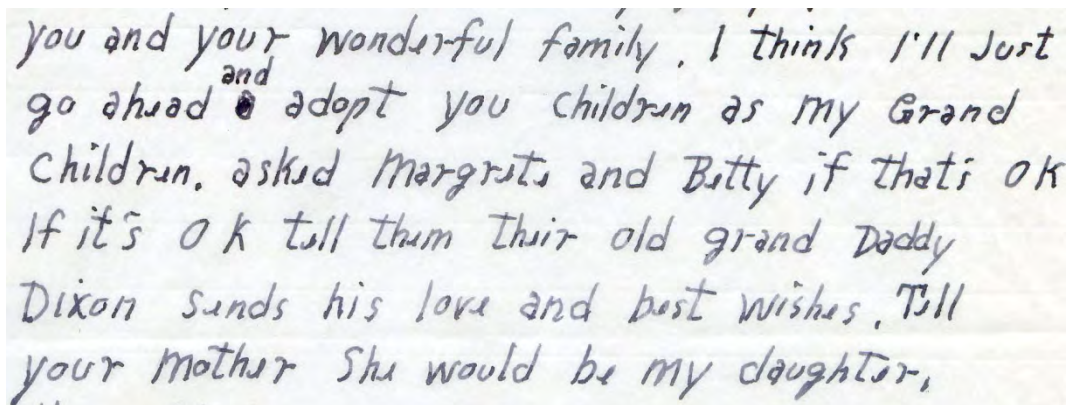 you and your wonderful family. I think I'll Just
and
go ahead adopt you children as my Grand
Children. asked Margrete and Betty if that's OK
If it's OK tell them their old grand Daddy
Dixon sends his love and best wishes. Tell
your Mother She would be my daughter.